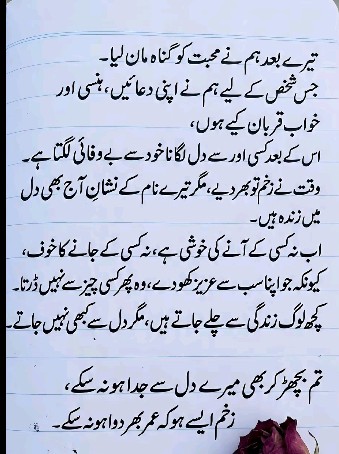 تیرے بعد ہم نے محبت کو گناہ مان لیا۔
جس شخص کے لیے ہم نے اپنی دعائیں، ہنسی اور
خواب قربان کیے ہوں،
اس کے بعد کسی اور سے دل لگانا خود سے بے وفائی لگتا ہے۔
وقت نے زخم تو بھر دیے، مگر تیرے نام کے نشان آج بھی دل
میں زندہ ہیں۔
اب نہ کسی کے آنے کی خوشی ہے، نہ کسی کے جانے کا خوف،
کیونکہ جو اپنا سب سے عزیز کھو دے، وہ پھر کسی چیز سے نہیں ڈرتا۔
کچھ لوگ زندگی سے چلے جاتے ہیں، مگر دل سے کبھی نہیں جاتے۔
تم بچھڑ کر بھی میرے دل سے جدا ہو نہ سکے،
زخم ایسے ہو کہ عمر بھر دوا ہو نہ سکے۔